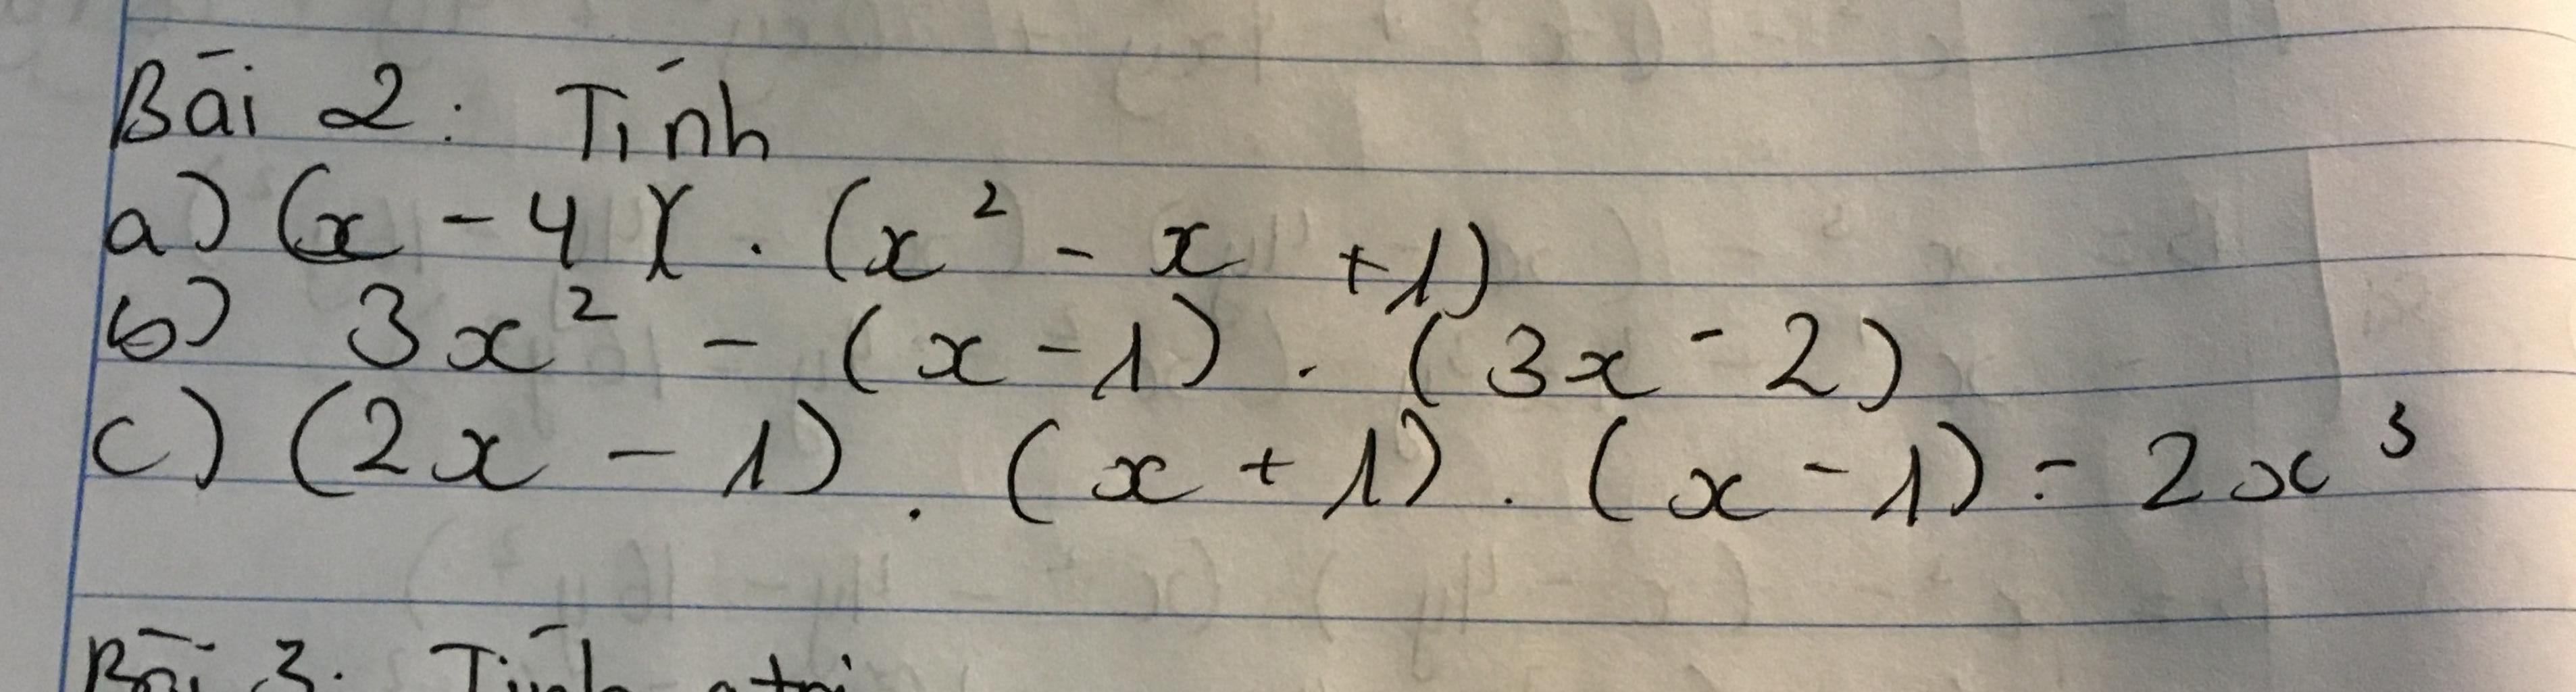 Bài 2: Tính
a) (x - 4) . (x² - x + 1)
b) 3x² - (x - 1) . (3x - 2)
c) (2x - 1) . (x + 1) . (x - 1) - 2x³
Bài 3: Tính